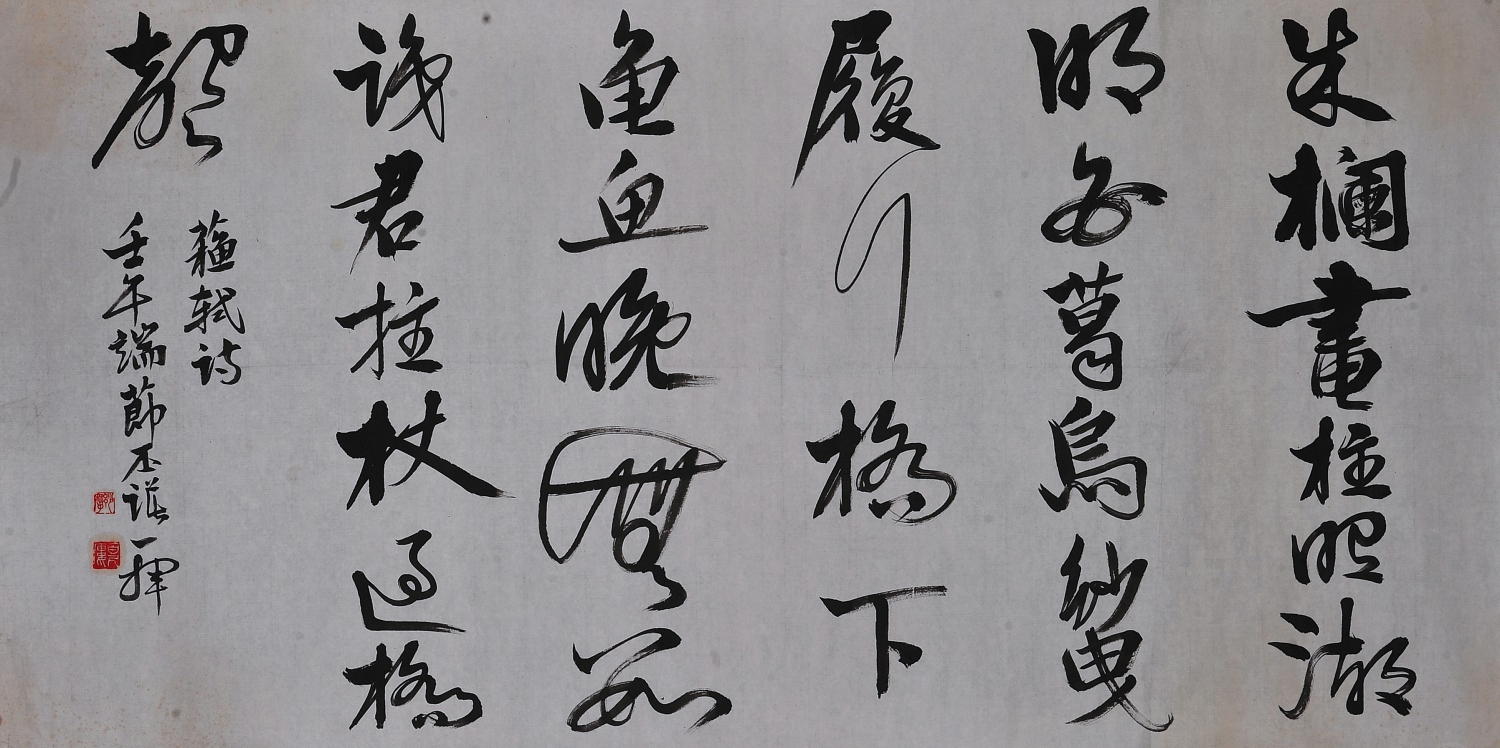 朱欄畫柱照湖
明白葛烏紗曳
履行橋下
龜魚晚無數
識君拄杖過橋
聲
蘇軾詩
壬午端節丕謨一揮